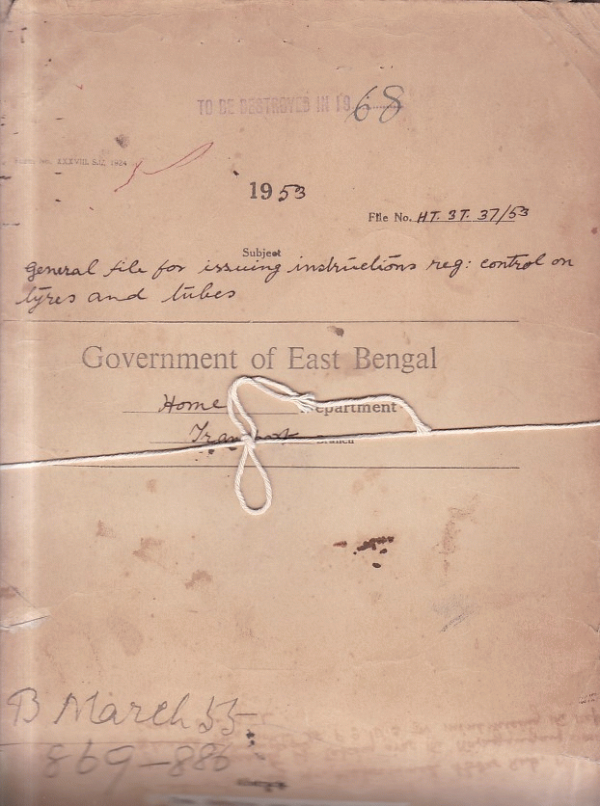 TO BE DESTROYED IN 19 68
XXXVIII. S.I., 1924
1953
File No. HT. 3T. 37/53
Subject
General file for issuing instructions reg: control on
tyres and tubes
Government of East Bengal
Home Department
Transport Branch
B March 55
869-886